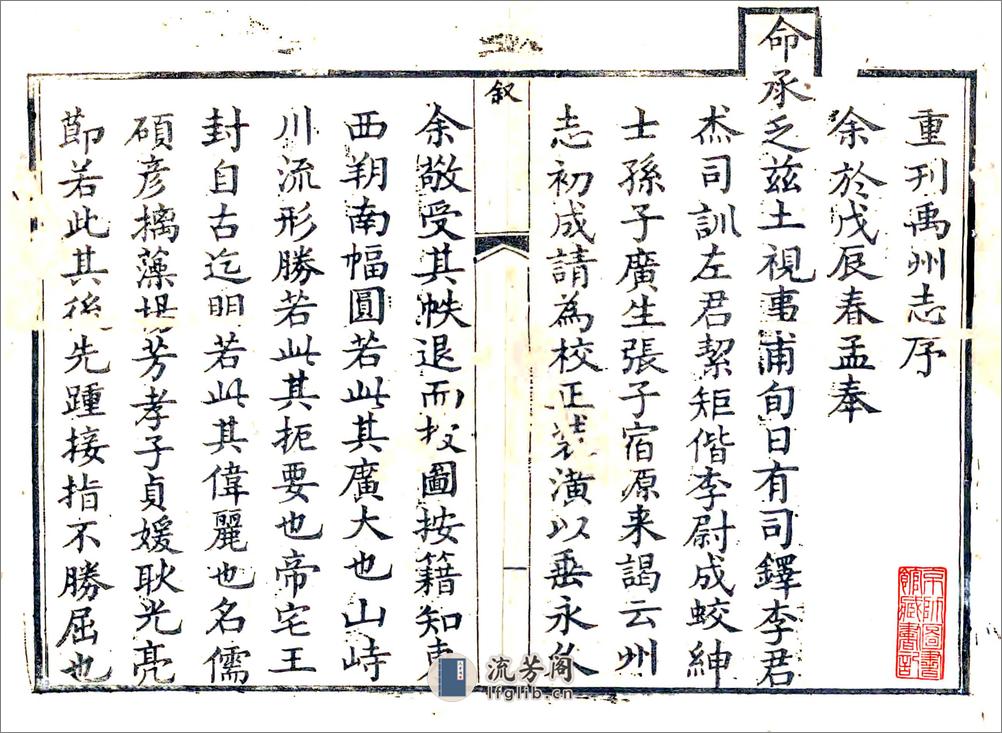 重刊禹州志序
余於戊辰春孟奉
命承乏兹土視事甫旬日有司鐸李君
杰司訓左君絜矩偕李尉成蛟紳
士孫子廣生張子宿原来謁云州
志初成請為校正裝潢以垂永久
叙
一
余敬受其帙退而披圖按籍知東
西朔南幅圓若此其廣大也山峙
川流形勝若此其扼要也帝宅王
封自古迄明若此其偉麗也名儒
碩彦摛藻掞芳孝子貞媛耿光亮
節若此其後先踵接指不勝屈也
流芳阁
lfglib.cn